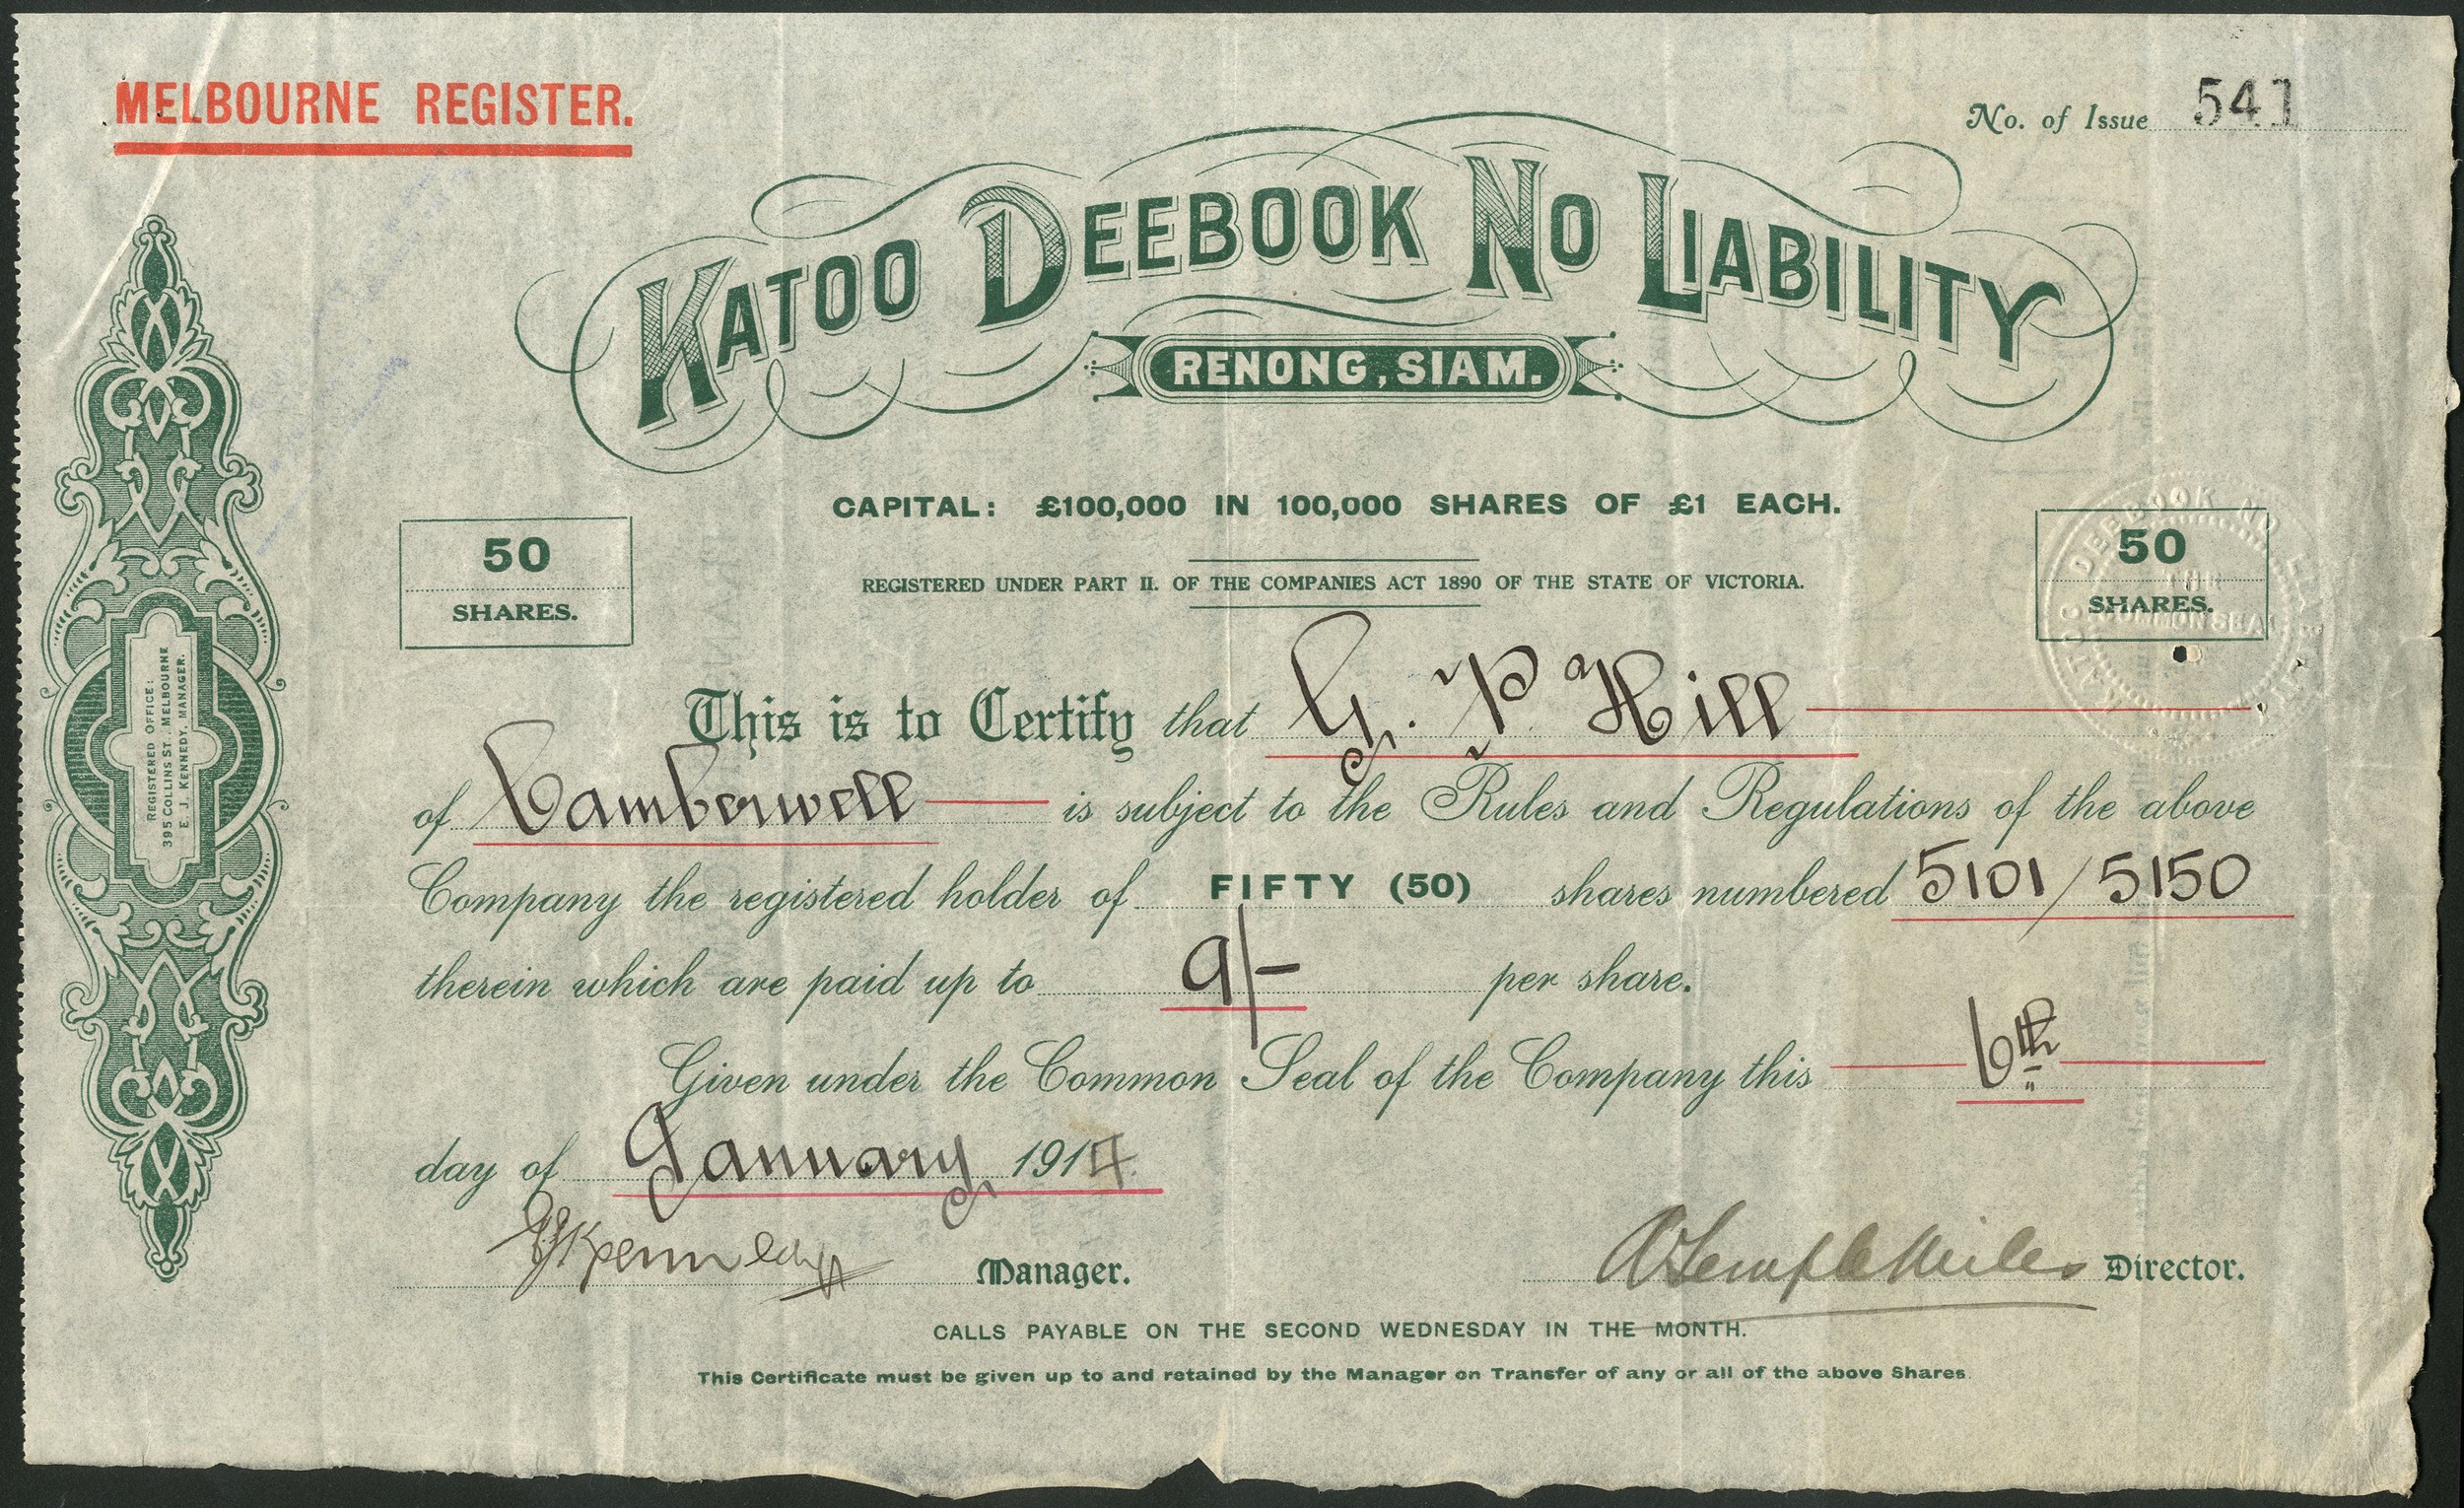 MELBOURNE REGISTER.
No. of Issue 541
KATOO DEEBOOK NO LIABILITY
RENONG, SIAM.
CAPITAL: £100,000 IN 100,000 SHARES OF £1 EACH.
REGISTERED UNDER PART II. OF THE COMPANIES ACT 1890 OF THE STATE OF VICTORIA.
50
SHARES.
50
SHARES.
KATOO DEEBOOK NO LIABILITY
THE
COMMON SEAL
REGISTERED OFFICE:
395 COLLINS ST. MELBOURNE
E. J. KENNEDY, MANAGER.
This is to Certify that G. P Hill
of Camberwell is subject to the Rules and Regulations of the above
Company the registered holder of FIFTY (50) shares numbered 5101/5150
therein which are paid up to 9/- per share.
Given under the Common Seal of the Company this 6th
day of January 1917.
EJKennedy Manager.
Director.
CALLS PAYABLE ON THE SECOND WEDNESDAY IN THE MONTH.
This Certificate must be given up to and retained by the Manager on Transfer of any or all of the above Shares.